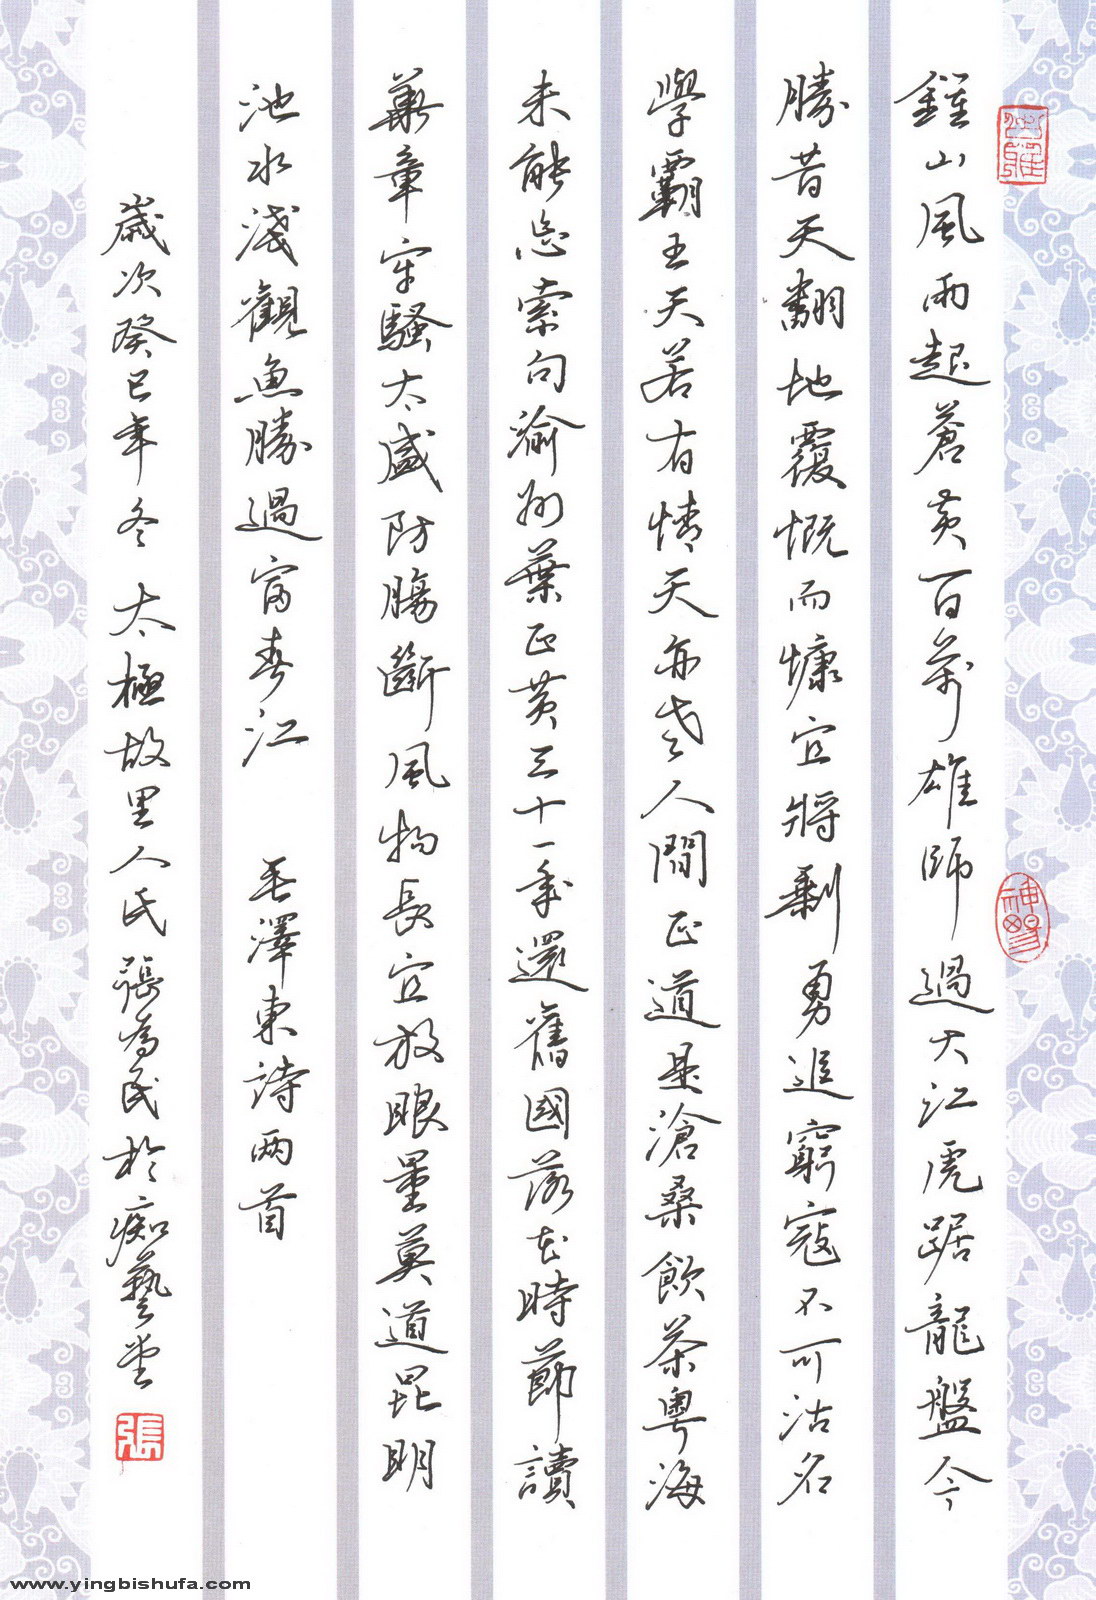 鍾山風雨起蒼黃百萬雄師過大江虎踞龍盤今
勝昔天翻地覆慨而慷宜將剩勇追窮寇不可沽名
學霸王天若有情天亦老人間正道是滄桑飲茶粵海
未能忘索句渝州葉正黃三十一年還舊國落花時節讀
華章牢騷太盛防腸斷風物長宜放眼量莫道昆明
池水淺觀魚勝過富春江 毛澤東詩两首
歲次癸巳年冬 太極故里人氏張為民於痴藝堂
張
www.yingbishufa.com